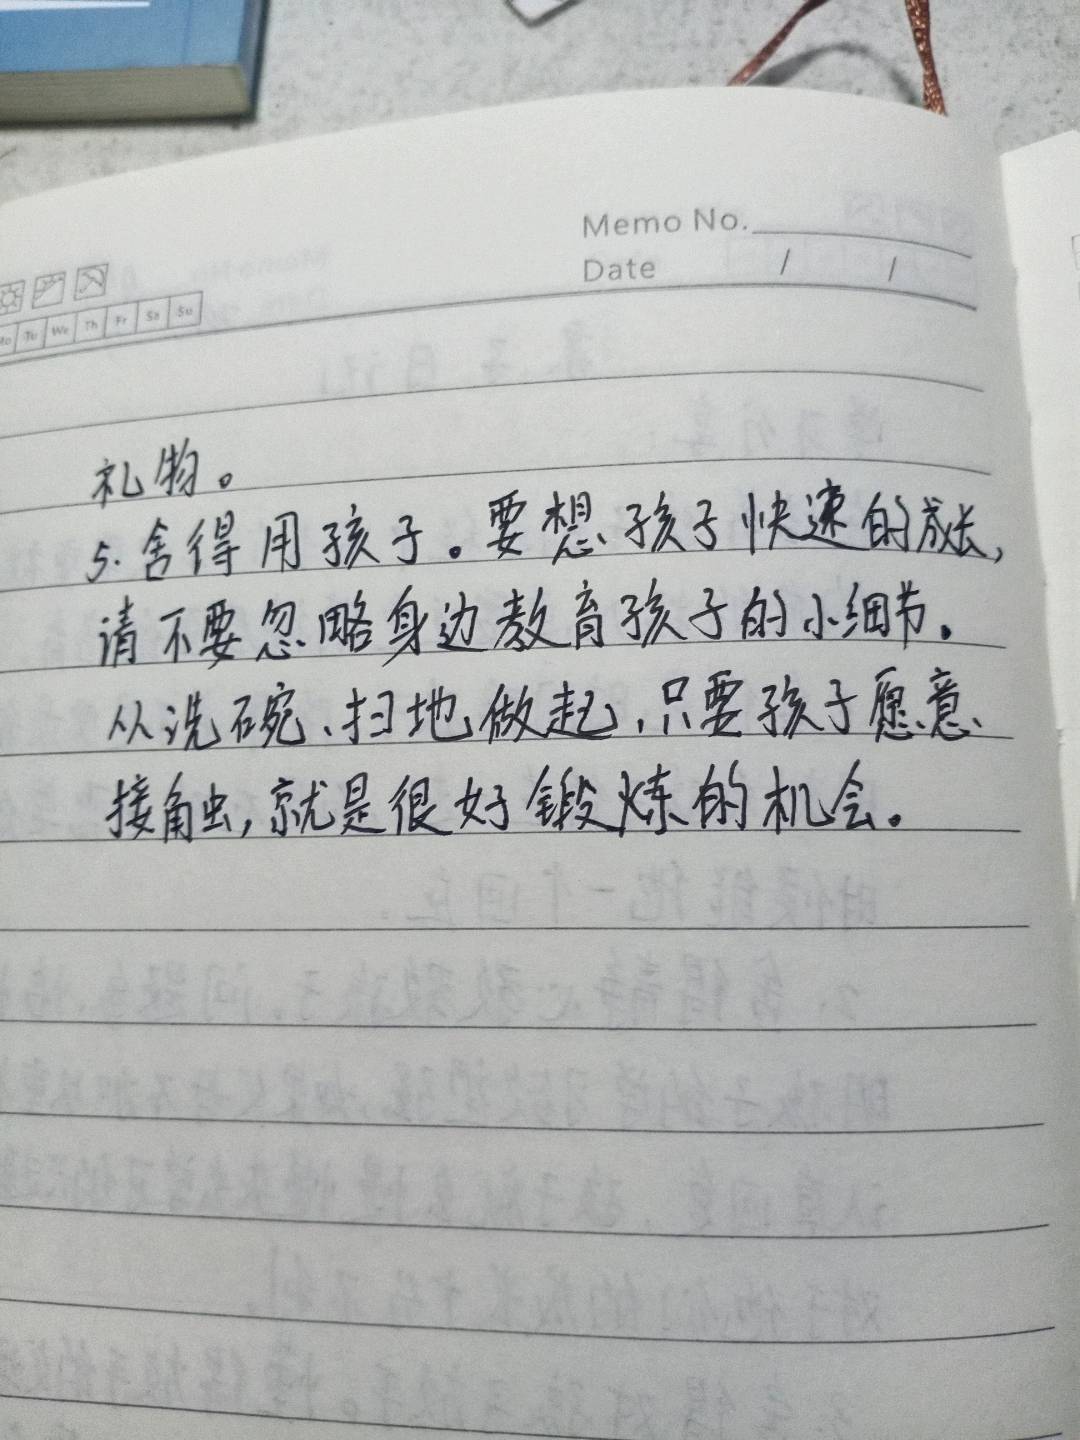 Memo No.
Date / /
Mo Tu We Th Fr Sa Su
礼物。
5.舍得用孩子。要想孩子快速的成长,
请不要忽略身边教育孩子的小细节。
从洗碗、扫地做起,只要孩子愿意
接触,就是很好锻炼的机会。